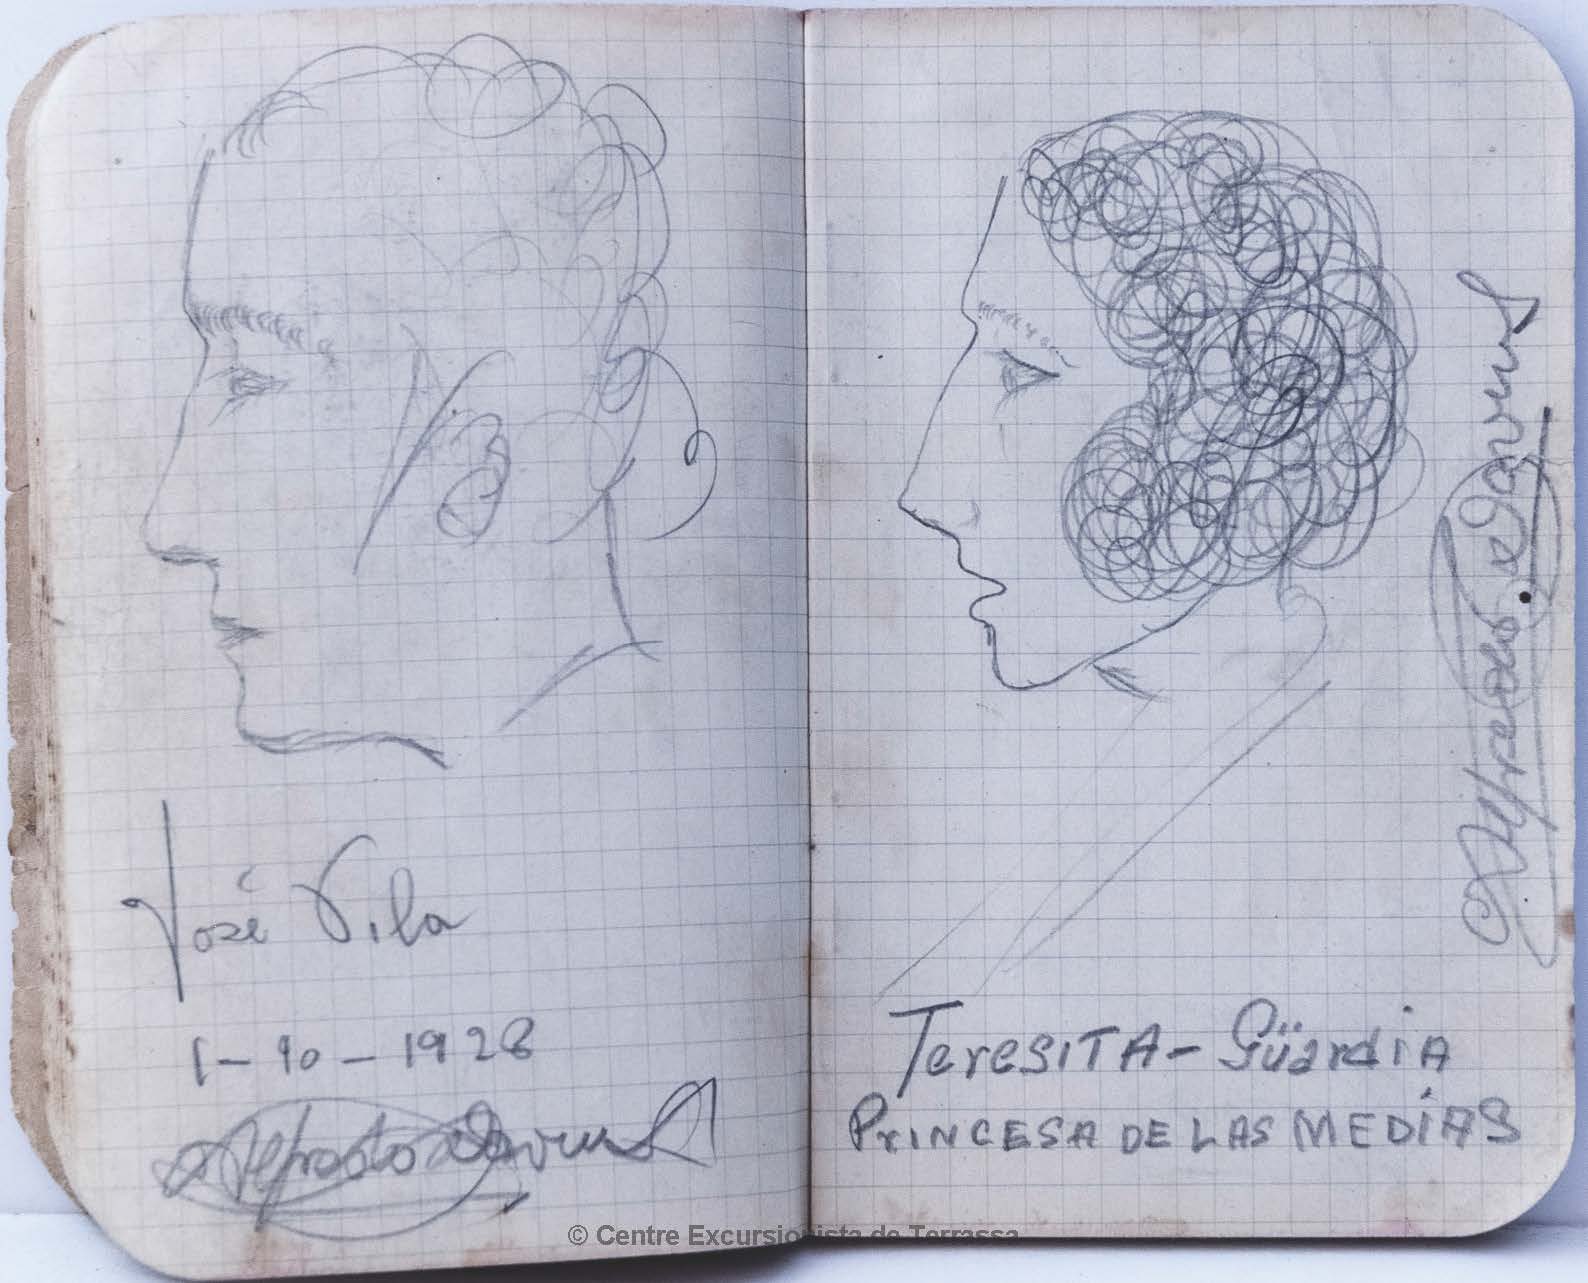 José Vila
1-10-1928
TeresITA- Güardia
PrINCESA DE LAS MEDíAS
© Centre Excursionista de Terrassa